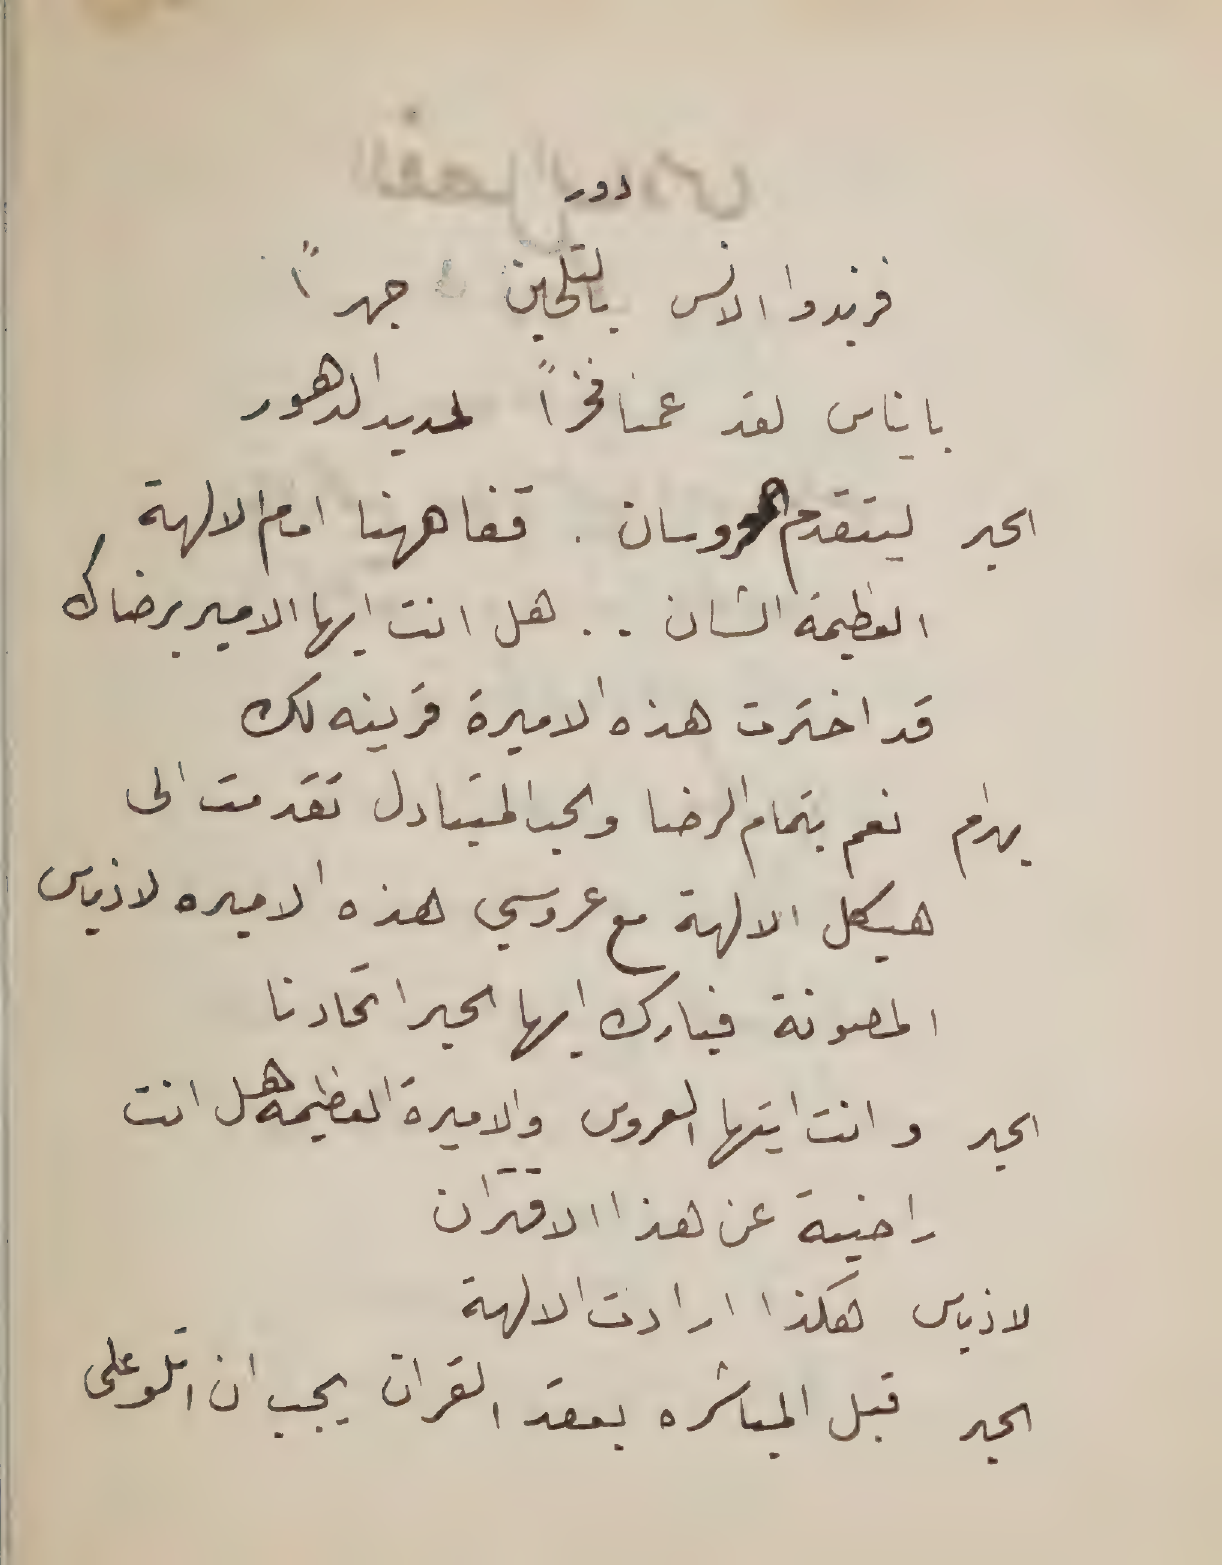 دور
فزيدوا الانس بالتلحين جهراً
يا يناس لقد عمنا فخراً لمديد الدهور
الحبر ليتقدم العروسان . قفا ههنا امام الالهة
العظيمة الشان . . هل انت ايها الامير برضاك
قد اخترت هذه الاميرة قرينه لك
بهرام نعم بتمام الرضا والحب المتبادل تقدمت الى
هيكل الالهة مع عروسي هذه الاميره لاذياس
المصونة فبارك ايها الحبر اتحادنا
الحبر وانت ايتها العروس والاميرة العظيمه هل انت
راضية عن هذا الاقتران
لاذياس هكذا ارادت الالهة
الحبر قبل المباشره بعقد القران يجب ان اتلو على